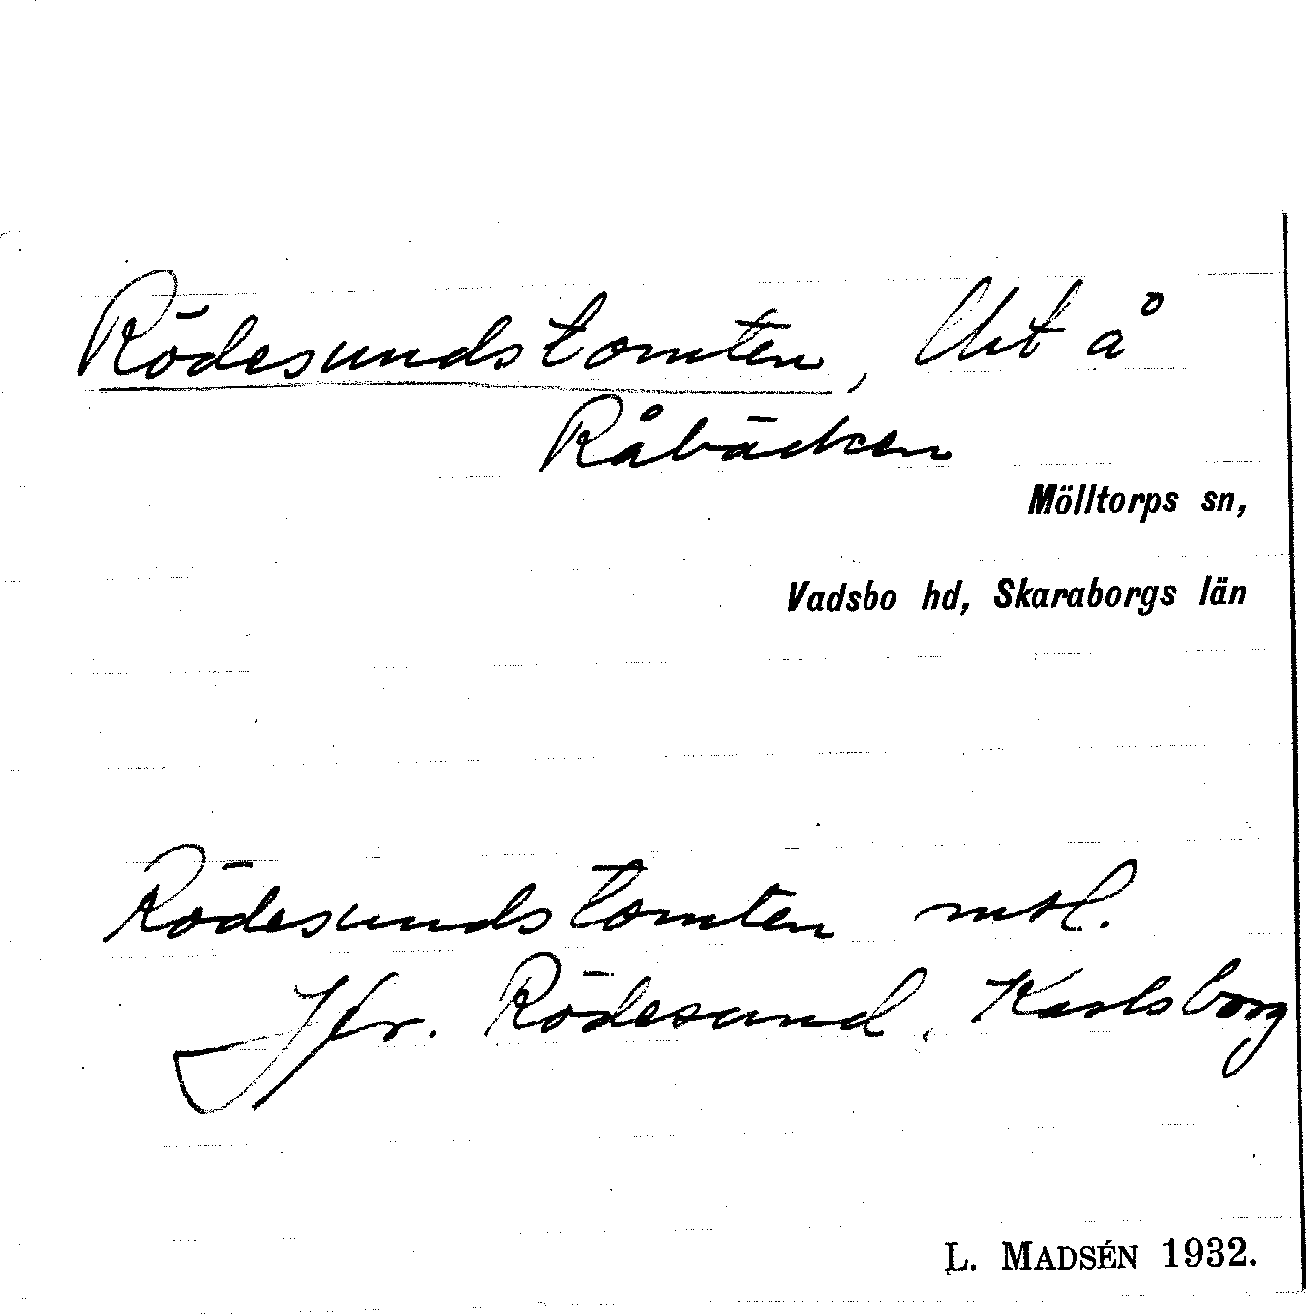 Rödesundstomten, lht å
Råbäcken
Mölltorps sn,
Vadsbo hd, Skaraborgs län
Rödesundstomten mtl.
Jfr. Rödesund, Karlsborg
L. MADSÉN 1932.